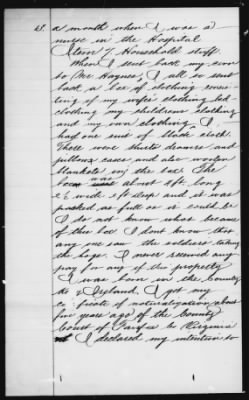 a month when I was a
nurse in the Hospital
Item 7 Household stuff.
When I sent back my
to Mr Haynes, I all so sent
back a box of clothing consis-
ting of my wifes clothing bed
clothing my childrens clothing
and my own clothing. I
had one end of black cloth.
There were sheets drawers and
pillow cases and also woolen
blankets in the box. The
box was about 4 ft long
2½ wide & 2 ft deep and it was
packed as full as it could be
I do not know what became
of this box I dont know that
any one saw the soldiers taking
the hogs. I never received any
pay for any of this property
I was born in the County
Ireland. I got my
certificate of naturalization about
five years ago of the County
Court of Fairfax Co Virginia
I declared my intention to